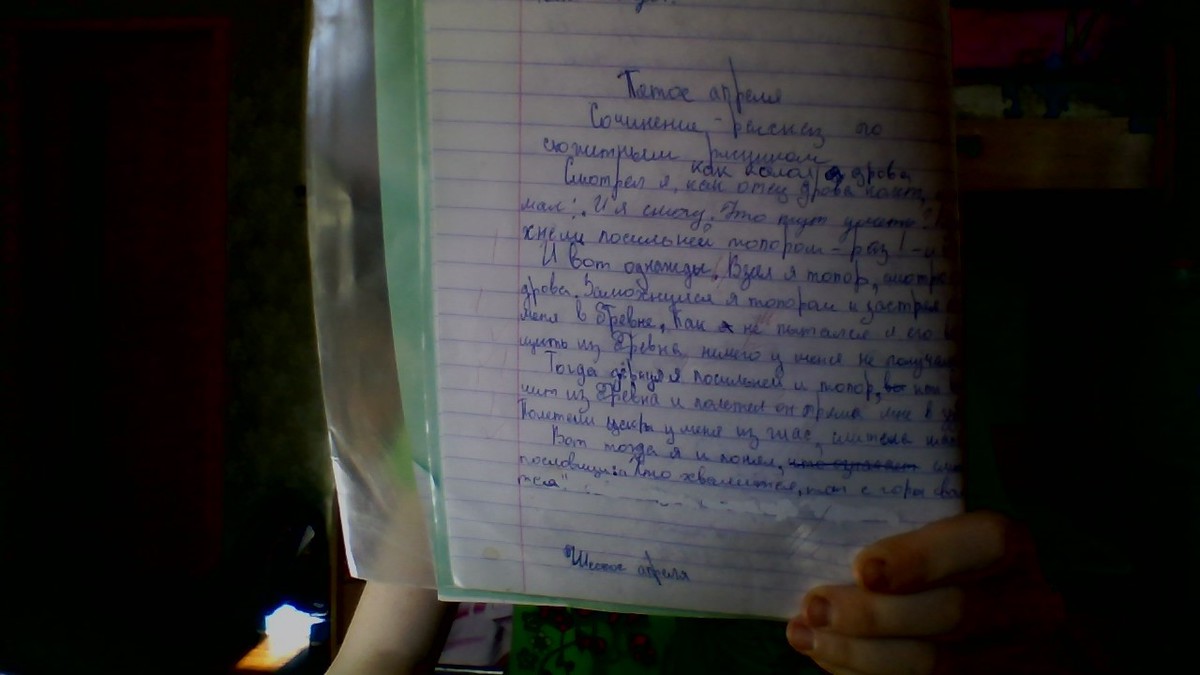 Пятое апреля
Сочинение - рассказ по
сюжетным рисункам
как колол я дрова
Смотрел я, как отец дрова колет,
мал: "И я смогу. Это тут уметь!
хнёшь посильней топором - раз! - и
И вот однажды. Взял я топор, смотрю
дрова. Замахнулся я топором и застрял
меня в бревне. Как я не пытался я его
щить из бревна, ничего у меня не получал
Тогда дёрнул я посильней и топор,
чит из бревна и полетел он прямо мне в
Полетели искры у меня из глаз,
Вот тогда я и понял, что означает
пословица: "Кто хвалится, тот с горы свал
тся".
Шестое апреля